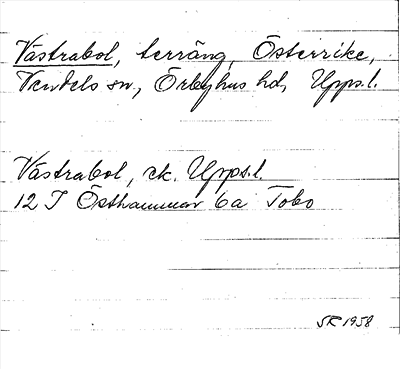 Västrabol, terräng, Österrike,
Vendels sn, Örbyhus hd, Upps.l.
Västrabol, ek. Upps.l.
12 I Östhammar 6a Tobo
SR 1958